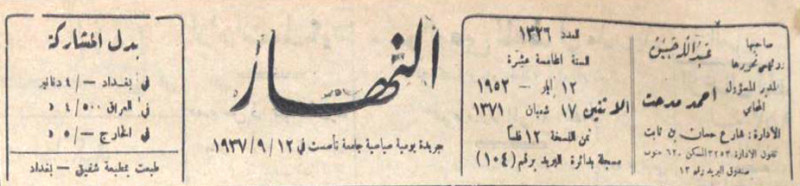 صاحبها
ورئيس تحريرها
عبدالله حسين
المدير المسؤول
المحامي
احمد مدحت
الادارة: شارع حسان بن ثابت
تلفون الادارة ٣٢٥٣ السكن ٦٢٠ منوب
صندوق البريد رقم ١٢
العدد ١٣٢٦
السنة الخامسة عشرة
١٢ ايار - ١٩٥٢
الاثنين ١٧ شعبان ١٣٧١
ثمن النسخة ١٢ فلساً
مسجلة بدائرة البريد برقم (١٠٤)
النهار
جريدة يومية سياسية جامعة تأسست في ١٢/٩/١٩٣٧
بدل المشاركة
في بغداد -/٤ دنانير
في العراق ٤/٥٠٠ د
في الخارج -/٥ د
طبعت بمطبعة شفيق - بغداد